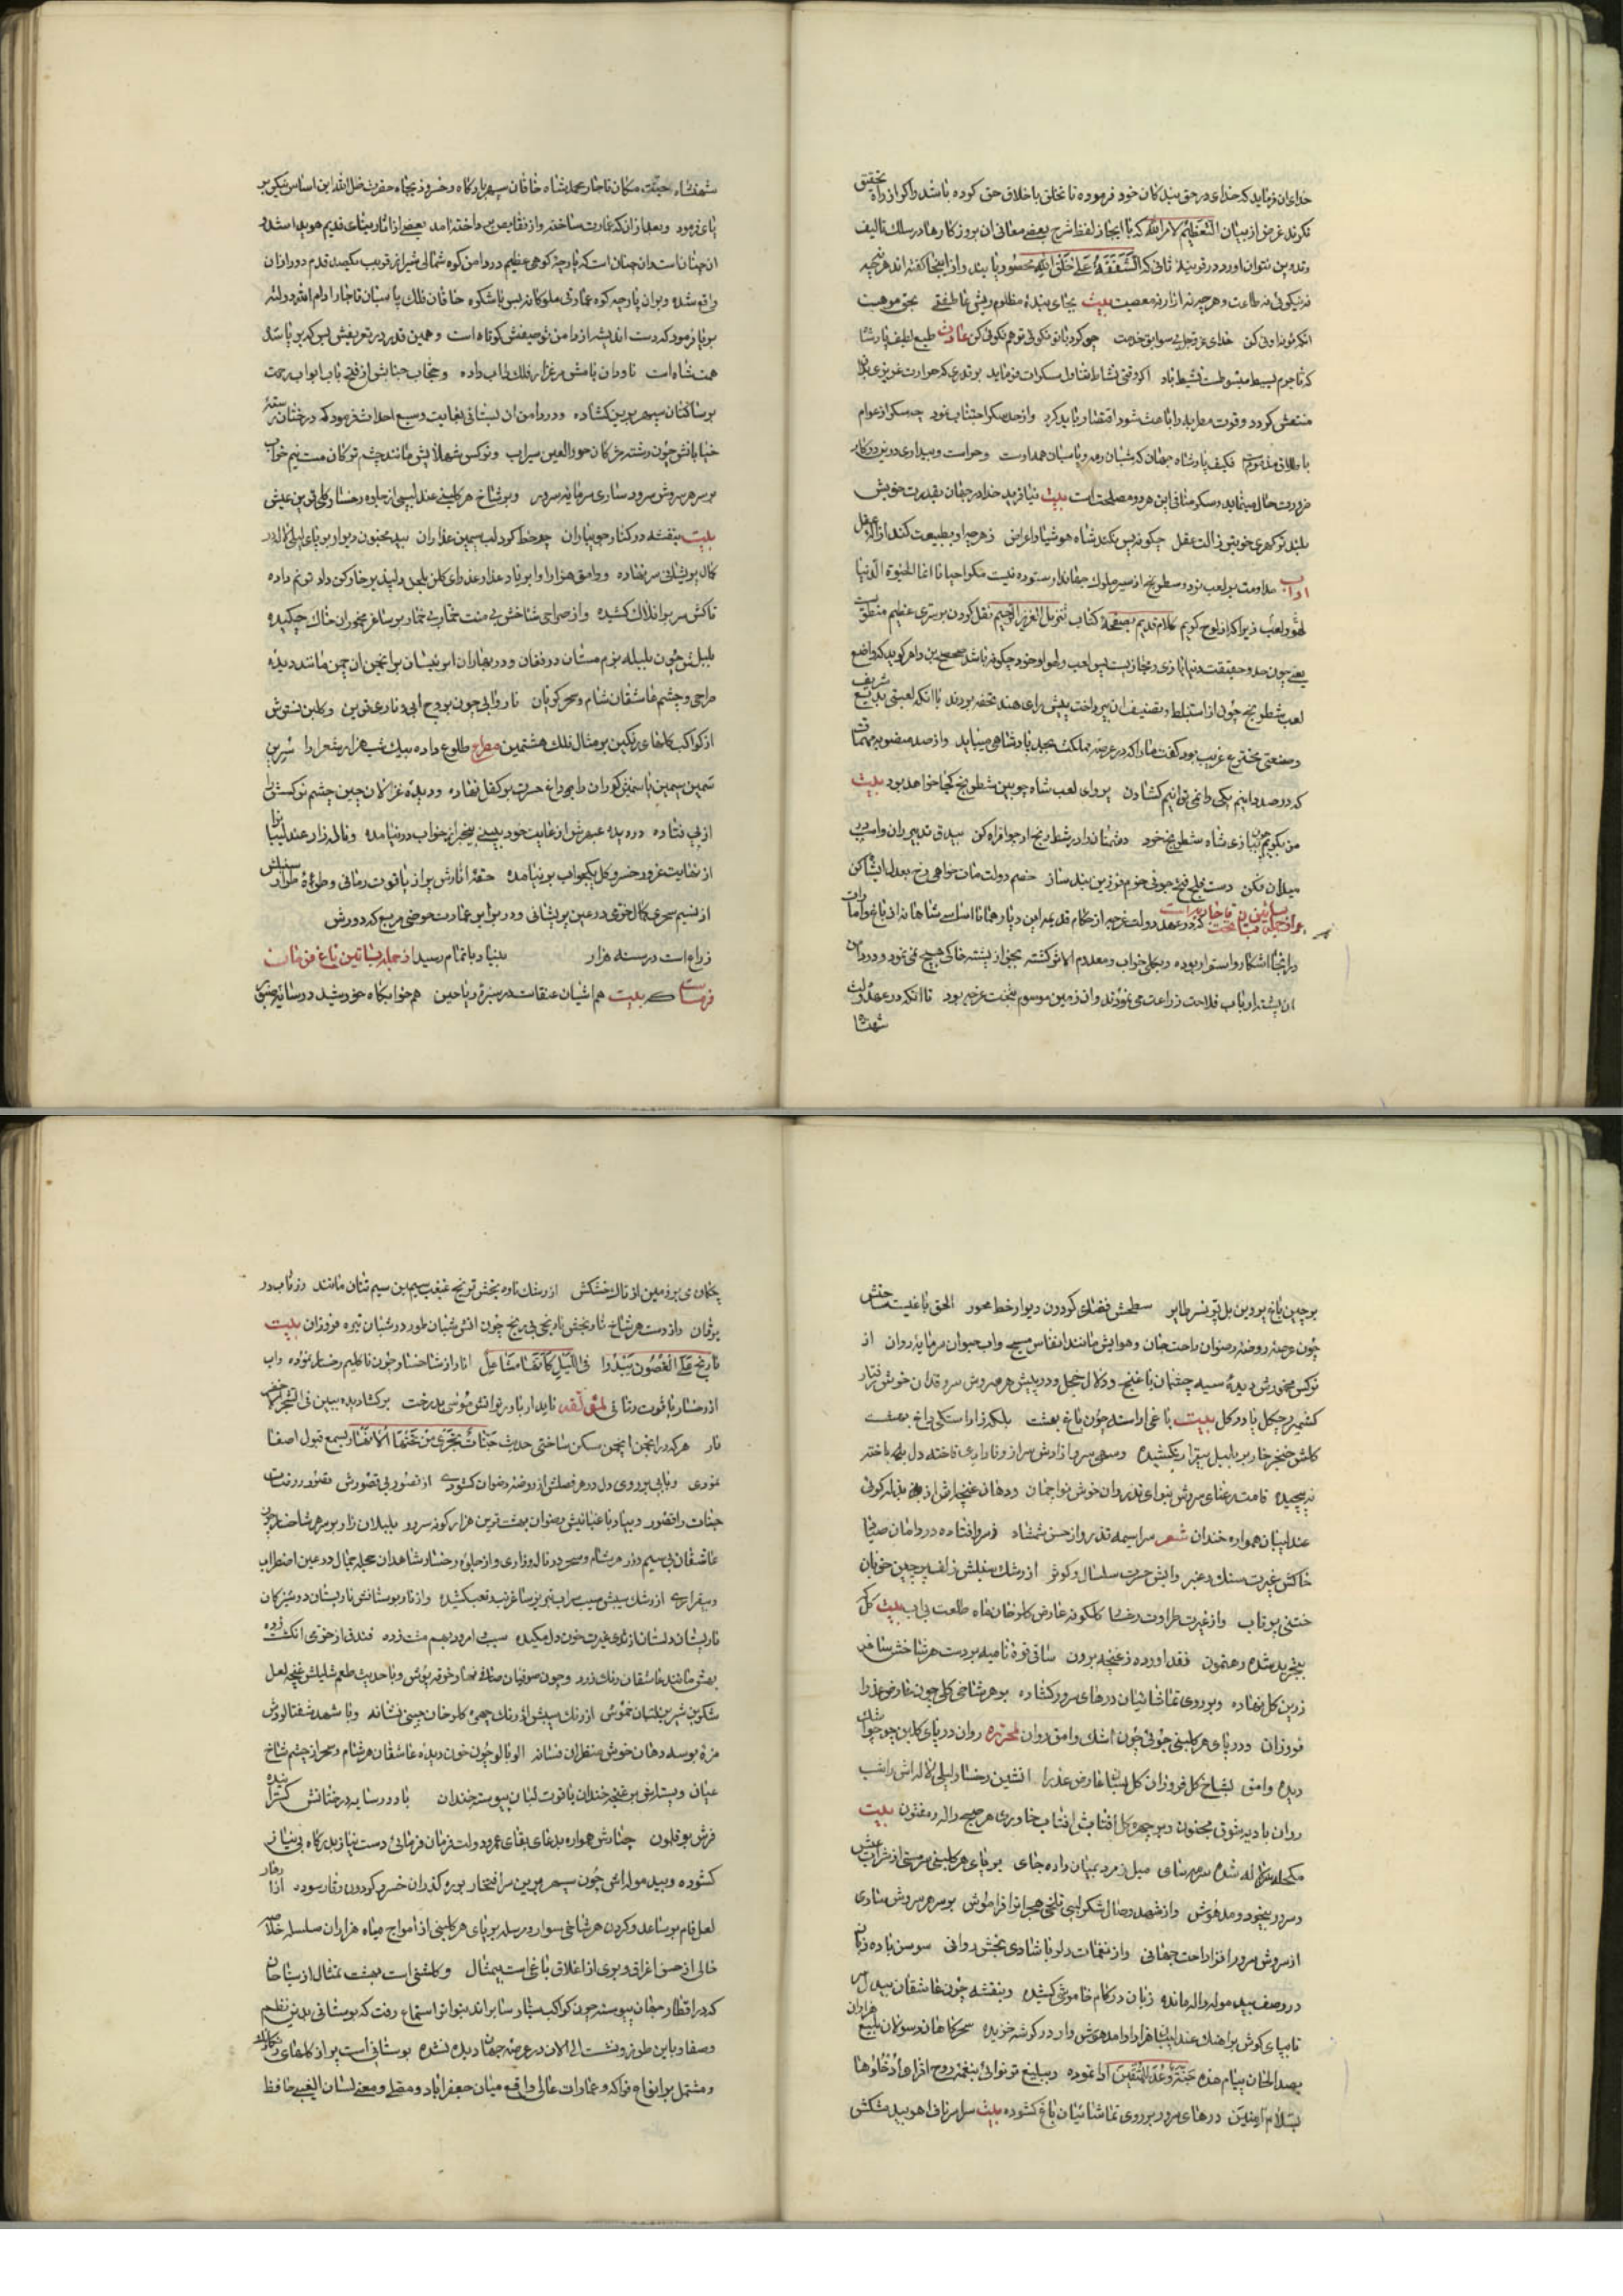 خدای ان فرماید که خدای در حق بندکان خود فرموده تا تخلق باخلاق حق کرده باشد واکر از راه تحقیق
نکرند غرض از بیان التعظیم لامر الله که با ایجاز لفظ شرح بعضی معانی ان بروزکارها در سلک تالیف
وتدوین نتوان اورد در قرینهٔ ثانی که الشفقة علی خلق الله محسور یابند واز اینجا کفته اند هر نتیجه
نه نیکوئی نه طاعت وهر چه نه ازار نه معصیت بیت بجای بندهٔ مظلوم ریش عاطفتی بحق موهبت
انکه تو خداوندی کن خدای عزوجل بی سوابق خدمت چو کرد با تو نکوئی تو هم نکوئی کن عادت طبع لطیف پادشاه
که تا جرم بسیط مبسوطست نشیط باد اکر وقتی نشاط تناول مسکرات فرماید بر قدری که حرارت غریزی بدان
منتعش کردد وقوت را باعث شود اقتصار باید کرد واز حد سکر اجتناب نمود چه سکر از عوام
باطلاق مذموم فکیف پادشاه جهان که شبان رمه وپاسبان همه اوست وحراست وبیداری در نیز ودر کار
ضرورت حال میشاید وسکر منافی این هر دو مصلحت است بیت نیافرید خدا در جهان بقدرت خویش
بلند تر کهری خوبتر ز الت عقل چکونه پس بکند شاه هوشیار اعراض ز هر چه او بطبیعت کند ازالهٔ عقل
اداب مداومت بر لعب نرد وشطرنج از سیر ملوک جهاندار ستوده نیست مکر احیانا انما الحیوة الدنیا
لهو ولعب زیرا که از لوح کریم کلام قدیم بصفحهٔ کتاب تنزیل العزیز الرحیم نقل کردن بر سری عظیم منطق
یعنی چون حد وحقیقت دنیا بازی ومجاز یست پس لعب ولهو او خود چکونه باشد
لعب شطرنج چون از استنباط وتصنیف ان بپرداخت پیش رای هند تحفه بردند با انکه لعبتی بدیع شریف
وصنعتی مخترع غریب بود کفت ما را که در عرصهٔ مملکت بجد پادشاهی میباید واز صد منصوبه مهمات
که در صدد انیم یکی را نمی توانیم کشادن پروای لعب شاه چوبین شطرنج کجا خواهد بود بیت
من نکویم چون نبازی شاه شطرنج خود دشمنان را در شطرنج ادبار افراه کن بیدق تدبیر ران واسب در
میدان فکن دست فیلی فتح جوئی خرم فرزین بند ساز خصم دولت مات خواهی رخ بعدل شاه کن
که در عهد دولت غرچه از حکام قدیمه این دیار همانا اساسی شاهانه از باغ وعمارات
در انجا اشکار واستوار بوده وبکلی خراب ومعدوم الاثر کشته بجز از پشته خاکی هیچ نمی نمود ودر دامن
ان پشته ارباب فلاحت زراعت می نمودند وان زمین موسوم بتخت غرچه بود تا انکه در عهد دولت
شهنشاه
شهنشاه جنت مکان تاجدار محمد شاه خاقان سپهر بارکاه وخسرو ذیجاه حضرت ظل الله این اساس نیکو بر
پای فرمود وبعد از ان که عمارت ساخته واز نقایص پرداخته امد بعضی از اثار بنای قدیم هویدا شد
ان چنانست که پارچهٔ کوهی عظیم در دامن کوه شمالی شیراز قریب بیکصد قدم دور از ان
واقع شده وبر ان پارچه کوه عمارتی ملوکانه بس باشکوه خاقان فلک پاسبان تاجدار ادام الله دولته
بر پا فرمود که دست اندیشه از دامن توصیفش کوتاه است وهمین قدر در تعریفش بس که بر پا شدهٔ
همت شاه است ناودان بامش مرغزار فلک را اب داده وحجاب جنابش از فتح باب ابواب رحمت
بر ساکنان سپهر برین کشاده ودر دامن ان بستانی بغایت وسیع احداث فرمود که درختان رستهٔ
خیابانش چون رشته مژکان حور العین سیراب ونرکس شهلایش مانند چشم ترکان مست نیم خواب
بر سر هر سروش سرود ساری سرمایه سرور وبر شاخ هر کلبنی عندلیبی از جلوه رخسار کلی قرین عیش
بیت بنفشه در کنار جویباران چو خط کرد لب سیمین عذاران بید مجنون دیوار بر پای لیلی لاله در
کمال پریشانی سر نهاده ووامق هزار اوا بر یاد عذار عذرای کلبن بلحن دلپذیر خارکن داد ترنم داده
تاکش سر بر افلاک کشیده واز صراحی شاخش بی منت خمار بی خمار بر ساغر مخموران خاک چکیده
بلبلش چون بلبله بزم مستان در فغان ودر بهاران ابر نیسان بر انجمن ان چمن مانند دیدهٔ
صراحی وچشم عاشقان شام وسحر کریان نار وانی چون بروج ابی ونار عقربین وکلبن نسترش
از کواکب کلهای رنکین بر مثال فلک هشتمین مصراع طلوع داده بیک شب هزار شعرا را نسرین
سمین سیمین یاسمنش کوران را بی داغ حسرت بر کفل نهاده ودیدهٔ غزالان چین چشم نرکسش را
از پی فتاده دیده عبهرش از غایت خود بینی بیخبر از خواب در نیامده وناله زار عندلیبان را
از نهایت غرور خسرو کل بجواب بر نیامده حقهٔ انارش پر از یاقوت رمانی وطرهٔ طرار سنبلش
از نسیم سحری کمال خرمی در عین پریشانی ودر برابر این عمارت حوضی مربع که دورش
زراع است در سنه هزار بنیاد باتمام رسید از جمله بساتین باغ
بیت هم اشیان عنقاست در سبزهٔ ریاحین هم خوابکاه خورشید در سایهٔ صنوبر
بر چین باغ پروین بل پر نسر طایر سطحش فضای کردون دیوار خط محور الحق باغیست ساحتش
چون عرصه روضه رضوان راحت جان وهوایش مانند انفاس مسیح واب حیوان سرمایه روان از
نرکس مخمورش دیدهٔ سیه چشمان با غنج ودلال خجل ودر پیش هر سروش سرو قدان خوش رفتار
کشمیر وچکل پا در کل بیت باغی اراسته چون باغ بهشت بلکه زاراستکی داغ بهشت
کلش خنجر خار بر بلبل بیقرار بکشیده وسهی سرو ازادش سر از وفاداری فاخته دل باخته
نه پیچیده قامت رعنای سروش بنوای تذروان خوش نوا چمان ودهان غنچه اش از بذله کوئی
عندلیبان همواره خندان شعر سراسیمه تذرو از حسن شمشاد فرو افتاده در دامان صیاد
خاکش غیرت مشک وعنبر وابش حسرت سلسال وکوثر از رشک سنبلش زلف پرچین خوبان
ختنی پر تاب واز غیرت طراوت رخسار کلکونه عارض کلرخان ماه طلعت بی اب بیت کل
بتجرید شده رهنمون نقد اورده ز غنچه برون ساقی قوهٔ نامیه بر دست هر شاخش ساغر
زرین کل نهاده وبر روی تماشائیان درهای سرور کشاده بر هر شاخی کلی چون عارض عذرا
فروزان ودر پای هر کلبنی جوئی چون اشک وامق روان لمحرره روان در پای کلبن جو چو اشک
دیدهٔ وامق بشاخ کل فروزان کل بسان عارض عذرا اتشین رخسار لیلی لاله اش را شب
روان بادیه شوق مجنون وبر چهرهٔ کل افتابش افتاب خاوری هر صبح واله ومفتون بیت
مکحله ژاله شده سرمه سای میل زمرد بمیان داده جای بر پای هر کلبنی سرمستی از شراب عیش
وسرور بیخود ومدهوش واز شهد وصال شکر لبی تلخی هجرانرا فراموش بر سر هر سروش ساری
از سروش سرود افزا راحت جهانی واز نغمات دلربا شادی بخش روانی سوسن با ده زبان
در وصف بید مواله واله مانده زبان در کام خاموشی کشیده وبنفشه چون عاشقان بیدل سر
تا بپای کوش بر اهنک عندلیبان هزار اوا مدهوش وار در کوشه خزیده سحرکاهان رسولان بلیغ هزاران
بصد الحان پیام هذه جنة وعد المتقین ادا نموده وببلیغ تر نوائی بنغمه روح افزا ادخلوها
بسلام امنین درهای سرور بر روی تماشائیان باغ کشوده بیت سراسر ناف اهو بید مشکش
چکان می بر زمین از تاک خشکش از رشک ناوه بخش ترنج غبغب سیمین سیم تنان مانند زر ناب در
یرقان واز دست هر شاخ نارنجش نارنجی بی رنج چون اتش شبان طور در شبان تیره فروزان بیت
نارنج علی الغصون یبدوا فی اللیل کانها مشاعل انار از شاخسار چون نار کلیم رخسار نموده واب
از رخسار یاقوت رمانی لمؤلفه نایدار باور تو اتش موسی بدرخت برکشا دیده ببین فی الشجر الاخضر
نار هر که در انجمن این چمن سکن ساختی حدیث جنات تجری من تحتها الانهار بسمع قبول اصغا
نمودی وبابی بر روی دل در هر فصلش از روضهٔ رضوان کشودی از تصور بی قصورش قصور در وقت
جنات را قصور وبیاد باغبانیش رضوان بهشت ترین هزار کونه سرور بلبلان زار بر سر هر شاخسار چون
عاشقان بی سیم وزر هر شام وسحر در ناله وزاری واز جلوهٔ رخسار شاهدان حجله جمال در عین اضطراب
وبیقراری از رشک سیبش سیب سیراب تبریز ساغر غبغب کشیده واز نار بوستانش نار پستان دوشیزکان
نار پستان دلستان از ثدی غیرت خون دل مکیده سیب امرود بهم مشت زده فندقی از خرمی انکشت زده
بهش مانند عاشقان رنک زرد وچون صوفیان صافی نهاد خرقه پوش وبا حدیث طعم شلیلش غنچه لعل
شکرین شیرین لبان خموش از رنک سیبش اورنک چهرهٔ کلرخان چینی نشانه وبا شهد شفتالویش
مزهٔ بوسه دهان خوش منظران فسانه الوبالو چون خون دیدهٔ عاشقان هر شام وسحر از چشم شاخ
عیان وپسته اش بر غنچه خندان یاقوت لبان پیوسته خندان باد در سایه درختانش کسترانیده
فرش بوقلمون چنارش همواره بدعای بقای عمر ودولت فرمان فرمائی دست نیاز بدرکاه بی نیاز
کشوده وبید مواله اش چون سپهر برین سر افتخار بوره کذران خسرو کردون وقار سوده
لعل فام بر ساعد وکردن هر شاخی سوار ودر سلسله بر پای هر کلبنی از امواج میاه هزاران سلسله خلاصه
خالی از حسن اغراق وبری از اغلاق باغی است بیمثال وکلشنی است بهشت تمثال از سیاحان
که در اقطار جهان پیوسته چون کواکب سیار سایراند بتواتر استماع رفت که بوستانی بدین نظم
وصفا وباین طرز ونشست الی الان در عرصه جهان دیده نشده بوستانی است پر از کلهای رنکارنک
ومشتمل بر انواع فواکه وعمارات عالی واقع میان جعفراباد ومصلی ومعنی لسان الغیب حافظ